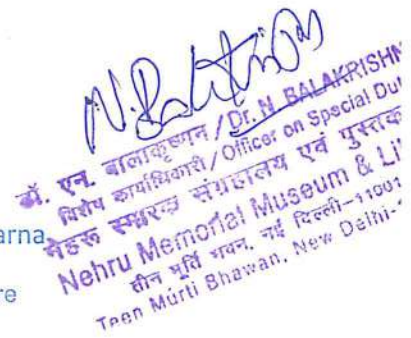 डॉ. एन. बालाकृष्णन / Dr. N. BALAKRISHN
विशेष कार्याधिकारी / Officer on Special Dut
नेहरू स्मारक संग्रहालय एवं पुस्तका
Nehru Memorial Museum & Li
तीन मूर्ति भवन, नई दिल्ली-11001
Teen Murti Bhawan, New Delhi-1
arna
re